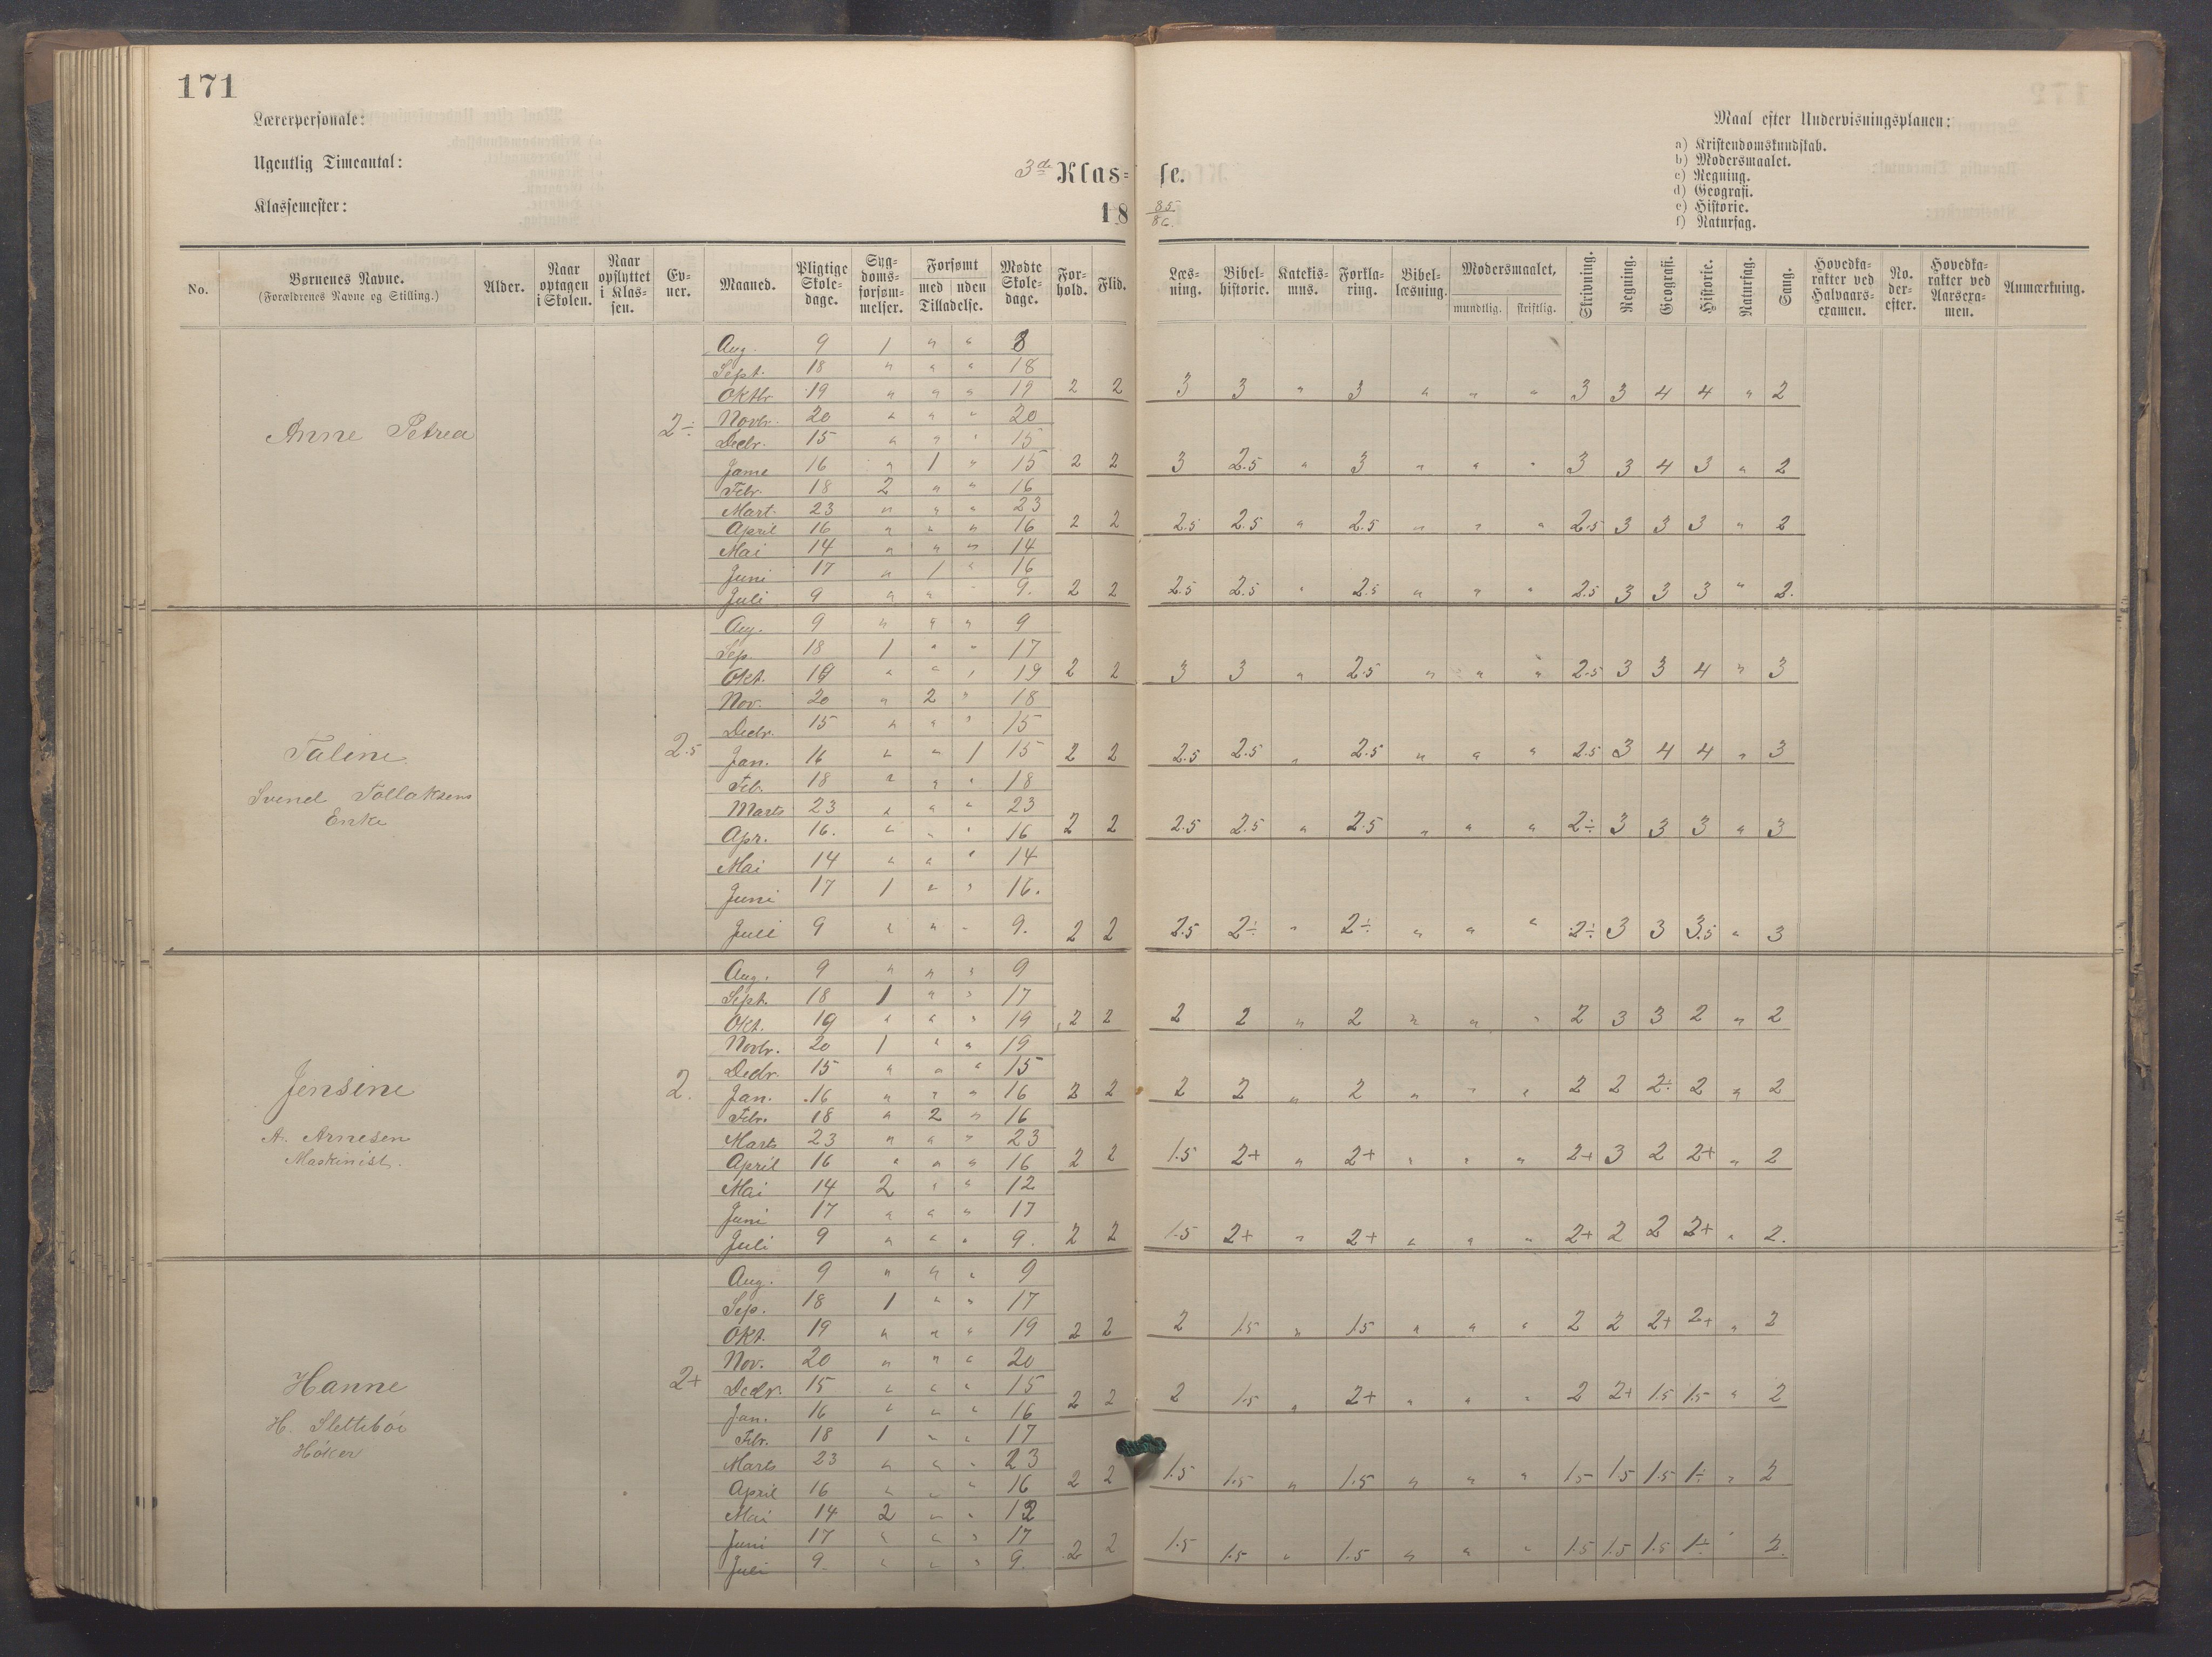 171
Lærerpersonale:
Ugentlig Timeantal:
Klassemester:
3de Klas= se.
18 85/86
Maal efter Undervisningsplanen:
a) Kristendomskundskab.
b) Modersmaalet.
c) Regning.
d) Geografi.
e) Historie.
f) Naturfag.
No. | Børnenes Navne. (Forældrenes Navne og Stilling.) | Alder. | Naar optagen i Skolen. | Naar opflyttet i Klas- sen. | Ev- ner. | Maaned. | Pligtige Skole- dage. | Syg- doms- forsøm- melser. | Forsømt med uden Tilladelse. | Mødte Skole- dage. | For- hold. | Flid. | Læs- ning. | Bibel- historie. | Katekis- mus. | Forkla- ring. | Bibel- læsning. | Modersmaalet, mundtlig. skriftlig. | Skrivning. | Regning. | Geografi. | Historie. | Naturfag. | Sang. | Hovedka- rakter ved Halvaars- examen. | No. der- efter. | Hovedka- rakter ved Aarsexa- men. | Anmærkning.
Anne Petrea 2÷
Aug. 9 1 " " 8
Sept. 18 " " " 18
Oktbr 19 " " " 19 2 2 3 3 " 3 " " " 3 3 4 4 " 2
Novbr. 20 " " " 20
Decbr. 15 " " " 15
Jan 16 " 1 " 15 2 2 3 2.5 " 3 " " " 3 3 4 3 " 2
Febr. 18 2 " " 16
Mart. 23 " " " 23
April 16 " " " 16 2 2 2.5 2.5 " 2.5 " " " 2.5 3 3 3 " 2
Mai 14 " " " 14
Juni 17 " 1 " 16
Juli 9 " " " 9. 2 2 2.5 2.5 " 2.5 " " " 2.5 3 3 3 " 2.
Taline
Svend Tollaksens
Enke
2.5
Aug. 9 " " " 9
Sep. 18 1 " " 17
Okt. 19 " " " 19 2 2 3 3 " 2.5 " " " 2.5 3 3 4 " 3
Nov. 20 " 2 " 18
Decbr. 15 " " " 15
Jan. 16 " " 1 15 2 2 2.5 2.5 " 2.5 " " " 2.5 3 4 4 " 3
Feb. 18 " " " 18
Marts 23 " " " 23
Apr. 16. " " " 16 2 2 2.5 2.5 " 2.5 " " " 2÷ 3 3 3 " 3
Mai 14 " " " 14
Juni 17 1 " " 16.
Juli 9 " " " 9. 2 2 2.5 2÷ " 2÷ " " " 2÷ 3 3 3.5 " 3
Jensine
A. Arnesen
Maskinist.
2.
Aug. 9 " " " 9
Sept. 18 1 " " 17
Okt. 19 " " " 19 2 2 2 2 " 2 " " " 2 3 3 2 " 2
Novbr. 20 1 " " 19
Decbr. 15 " " " 15
Jan. 16 " " " 16 2 2 2 2 " 2 " " " 2 2 2÷ 2 " 2
Febr. 18 " 2 " 16
Marts 23 " " " 23
April 16 " " " 16 2 2 1.5 2+ " 2+ " " " 2+ 3 2 2+ " 2
Mai 14 2 " " 12
Juni 17 " " " 17
Juli 9 " " " 9. 2 2 1.5 2+ " 2+ " " " 2+ 2 2 2+ " 2.
Hanne
H. Slettebøe
Høker
2+
Aug. 9 " " " 9
Sep. 18 1 " " 17
Okt. 19 " " " 19 2 2 2 1.5 " 1.5 " " " 2 2 2+ 2+ " 2
Nov. 20 " " " 20
Decbr. 15 " " " 15
Jan. 16 " " " 16 2 2 2 1.5 " 2+ " " " 2 2+ 1.5 1.5 " 2
Febr. 18 1 " " 17
Marts 23 " " " 23
April 16 " " " 16 2 2 1.5 1.5 " 1.5 " " " 1.5 1.5 1.5 1÷ " 2
Mai 14 2 " " 12
Juni 17 " " " 17
Juli 9. " " " 9. 2 2 1.5 1.5 " 1.5 " " " 1.5 1.5 1.5 1÷ " 2.